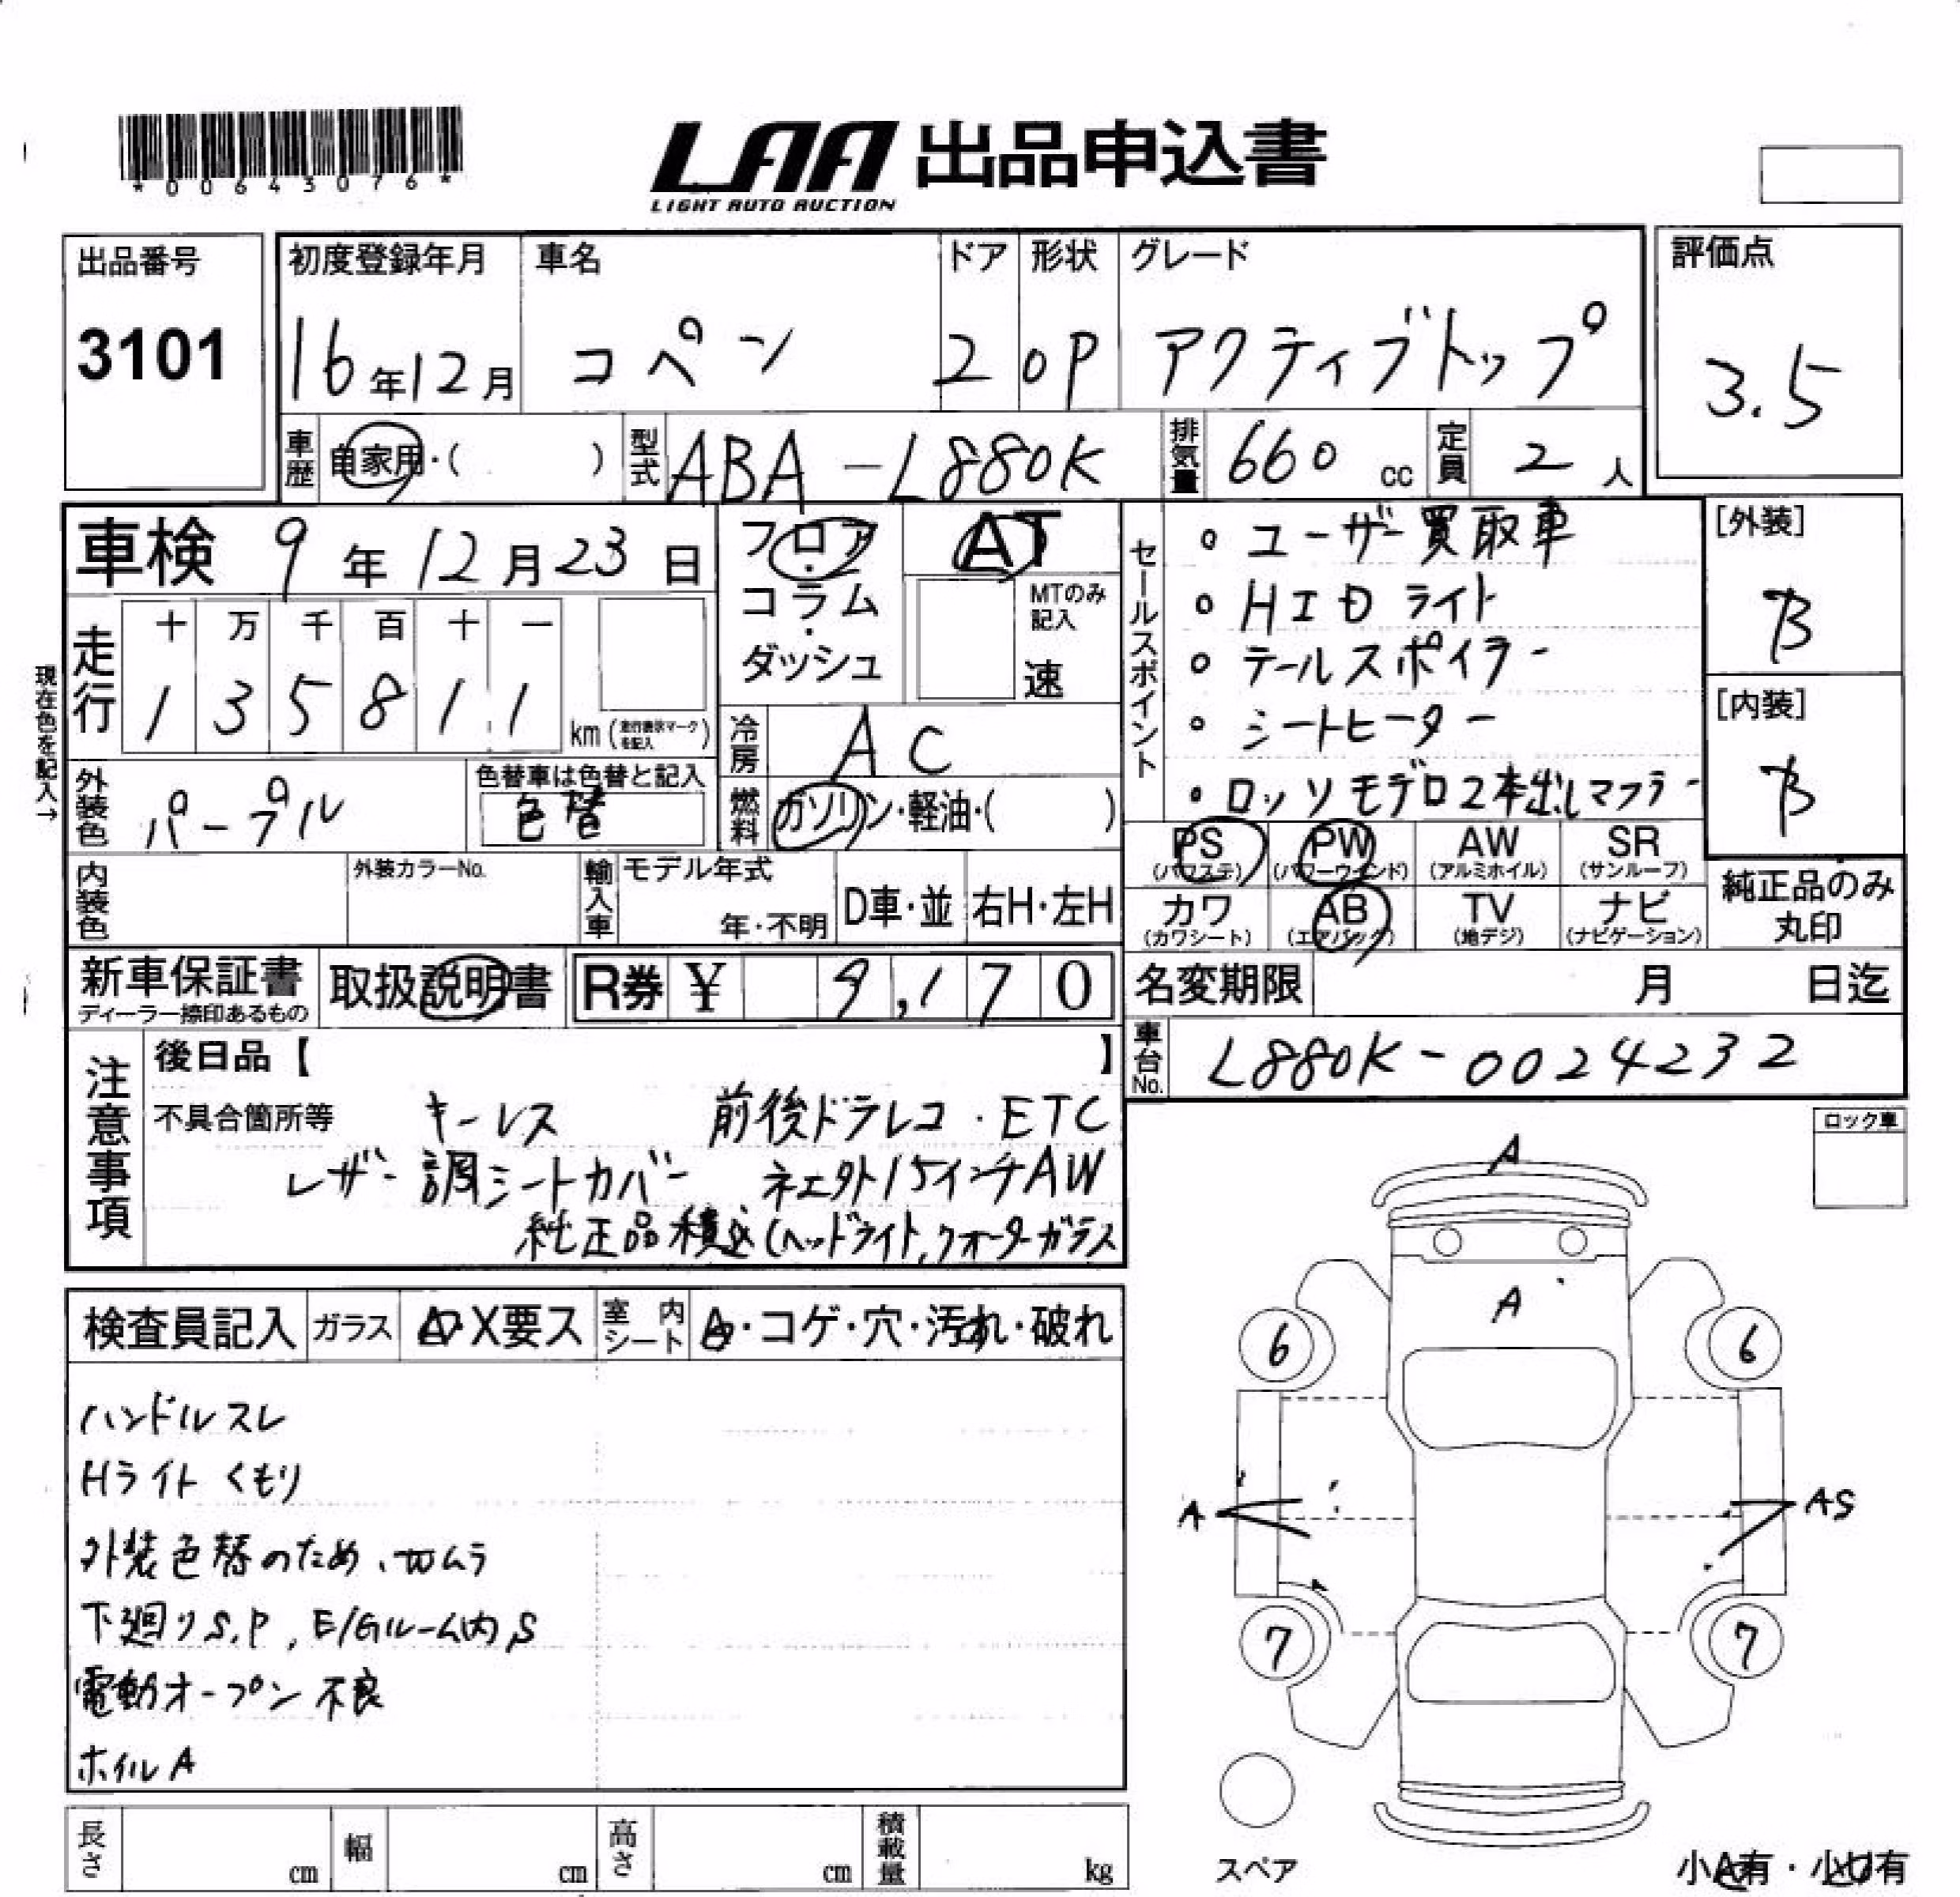 *00643076*
LAA 出品申込書
LIGHT AUTO AUCTION
出品番号
3101
初度登録年月
16年12月
車名
コペン
ドア
2
形状
OP
グレード
アクティブトップ
評価点
3.5
車歴
自家用・( )
型式
ABA-L880K
排気量
660 cc
定員
2 人
車検 9年12月23日
走行
十 万 千 百 十 一
1 3 5 8 1 1
km (走行表示マークを記入)
現在色を記入→
外装色
パープル
色替車は色替と記入
色替
内装色
外装カラーNo.
フロア・コラム・ダッシュ
AT
MTのみ記入
速
冷房
AC
燃料
ガソリン・軽油・( )
輸入車
モデル年式
年・不明
D車・並
右H・左H
セールスポイント
○ ユーザー買取車
○ HIDライト
○ テールスポイラー
○ シートヒーター
・ロッソモデロ2本出しマフラー
[外装]
B
[内装]
B
PS (パワステ)
PW (パワーウインド)
AW (アルミホイル)
SR (サンルーフ)
カワ (カワシート)
AB (エアバック)
TV (地デジ)
ナビ (ナビゲーション)
純正品のみ丸印
新車保証書
ディーラー捺印あるもの
取扱説明書
R券 ¥ 9,170
名変期限 月 日迄
車台No.
L880K-0024232
注意事項
後日品【 】
不具合箇所等
キーレス 前後ドラレコ・ETC
レザー調シートカバー 社外15インチAW
純正品積込(ヘッドライト,クォーターガラス
ロック車
検査員記入
ガラス
A・X要ス
室内シート
A・コゲ・穴・汚れ・破れ
ハンドルスレ
Hライトくもり
外装色替のため、切ムラ
下廻りS,P,E/Gルーム内S
電動オープン不良
ホイルA
A
A
6
6
A
AS
7
7
スペア
小A有・小U有
長さ cm
幅 cm
高さ cm
積載量 kg